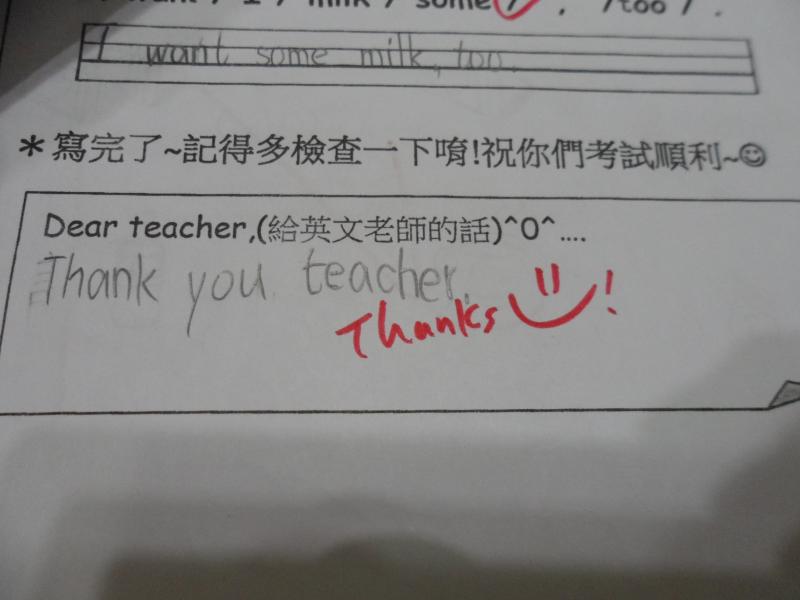 want / I / milk / some / , /too / .
I want some milk, too.
＊寫完了~記得多檢查一下唷!祝你們考試順利~☺
Dear teacher,(給英文老師的話)^0^....
Thank you teacher.
Thanks !